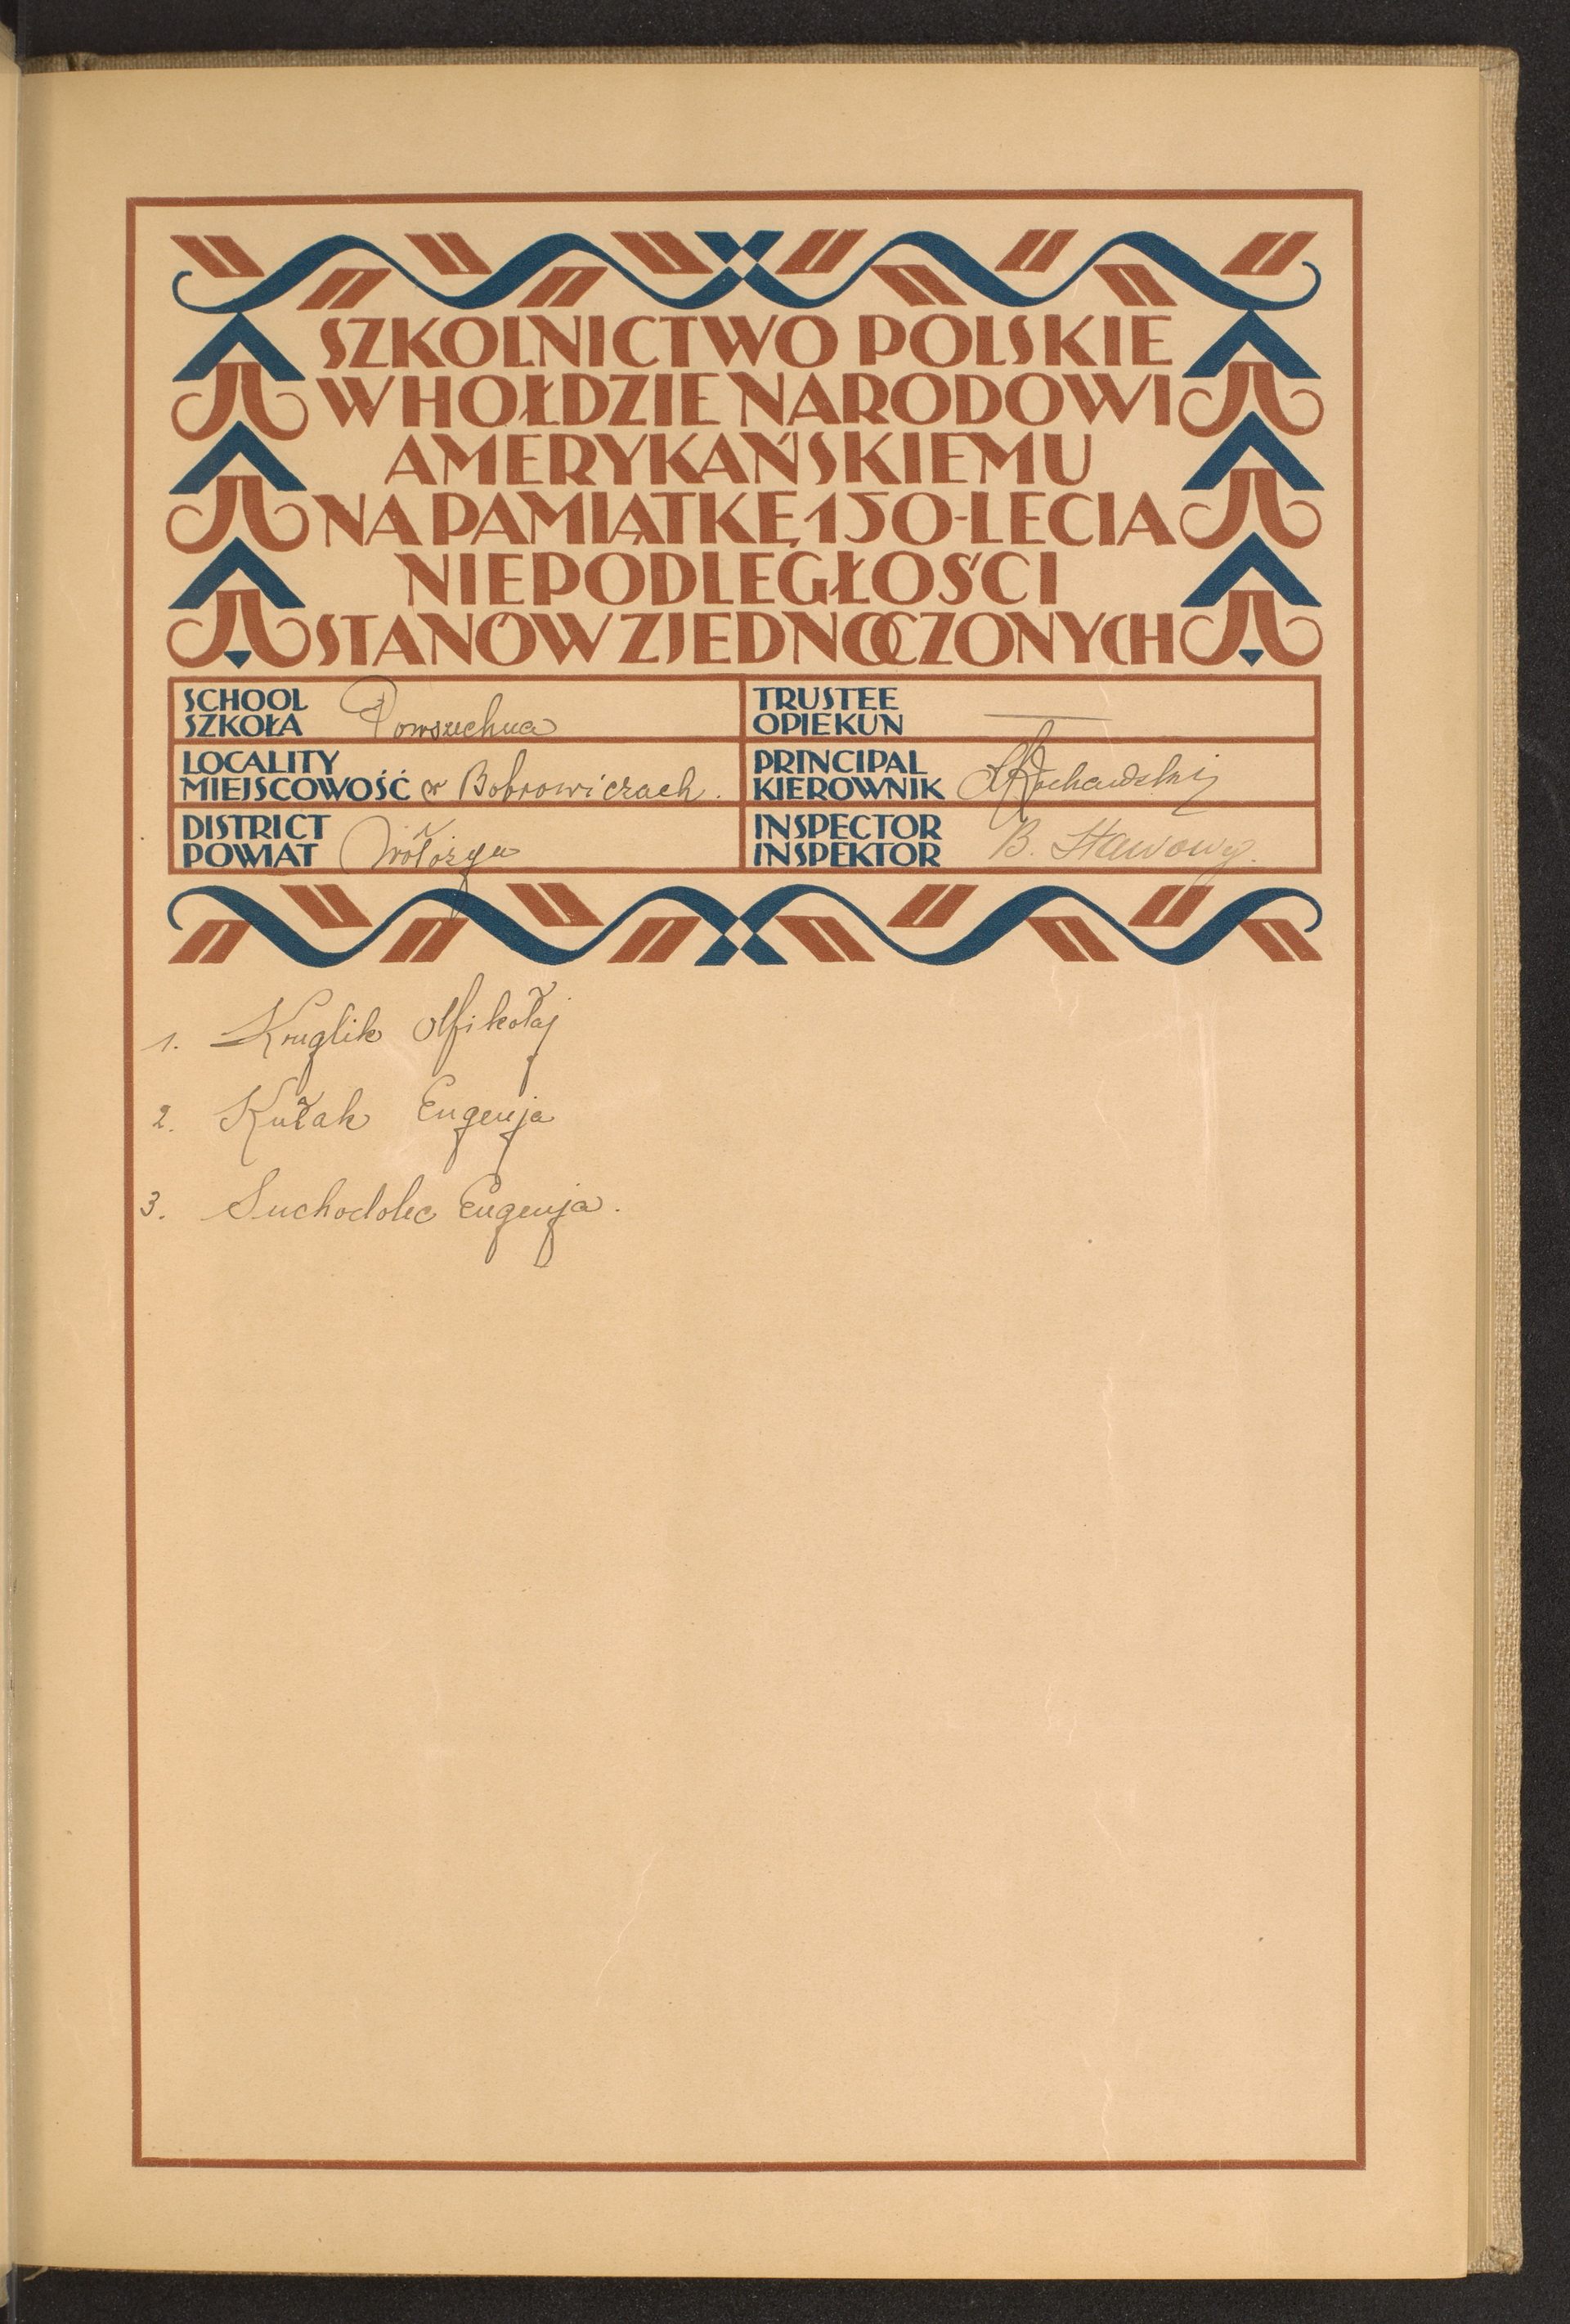 SZKOLNICTWO POLSKIE
W HOŁDZIE NARODOWI
AMERYKAŃSKIEMU
NA PAMIĄTKĘ 150-LECIA
NIEPODLEGŁOŚCI
STANÓW ZJEDNOCZONYCH
SCHOOL
SZKOŁA Powszechna
TRUSTEE
OPIEKUN —
LOCALITY
MIEJSCOWOŚĆ w Bobrowiczach.
PRINCIPAL
KIEROWNIK
DISTRICT
POWIAT Wołożyn
INSPECTOR
INSPEKTOR B. Stawowy.
1. Kruglik Mikołaj
2. Kułak Eugenja
3. Suchodolec Eugenja.